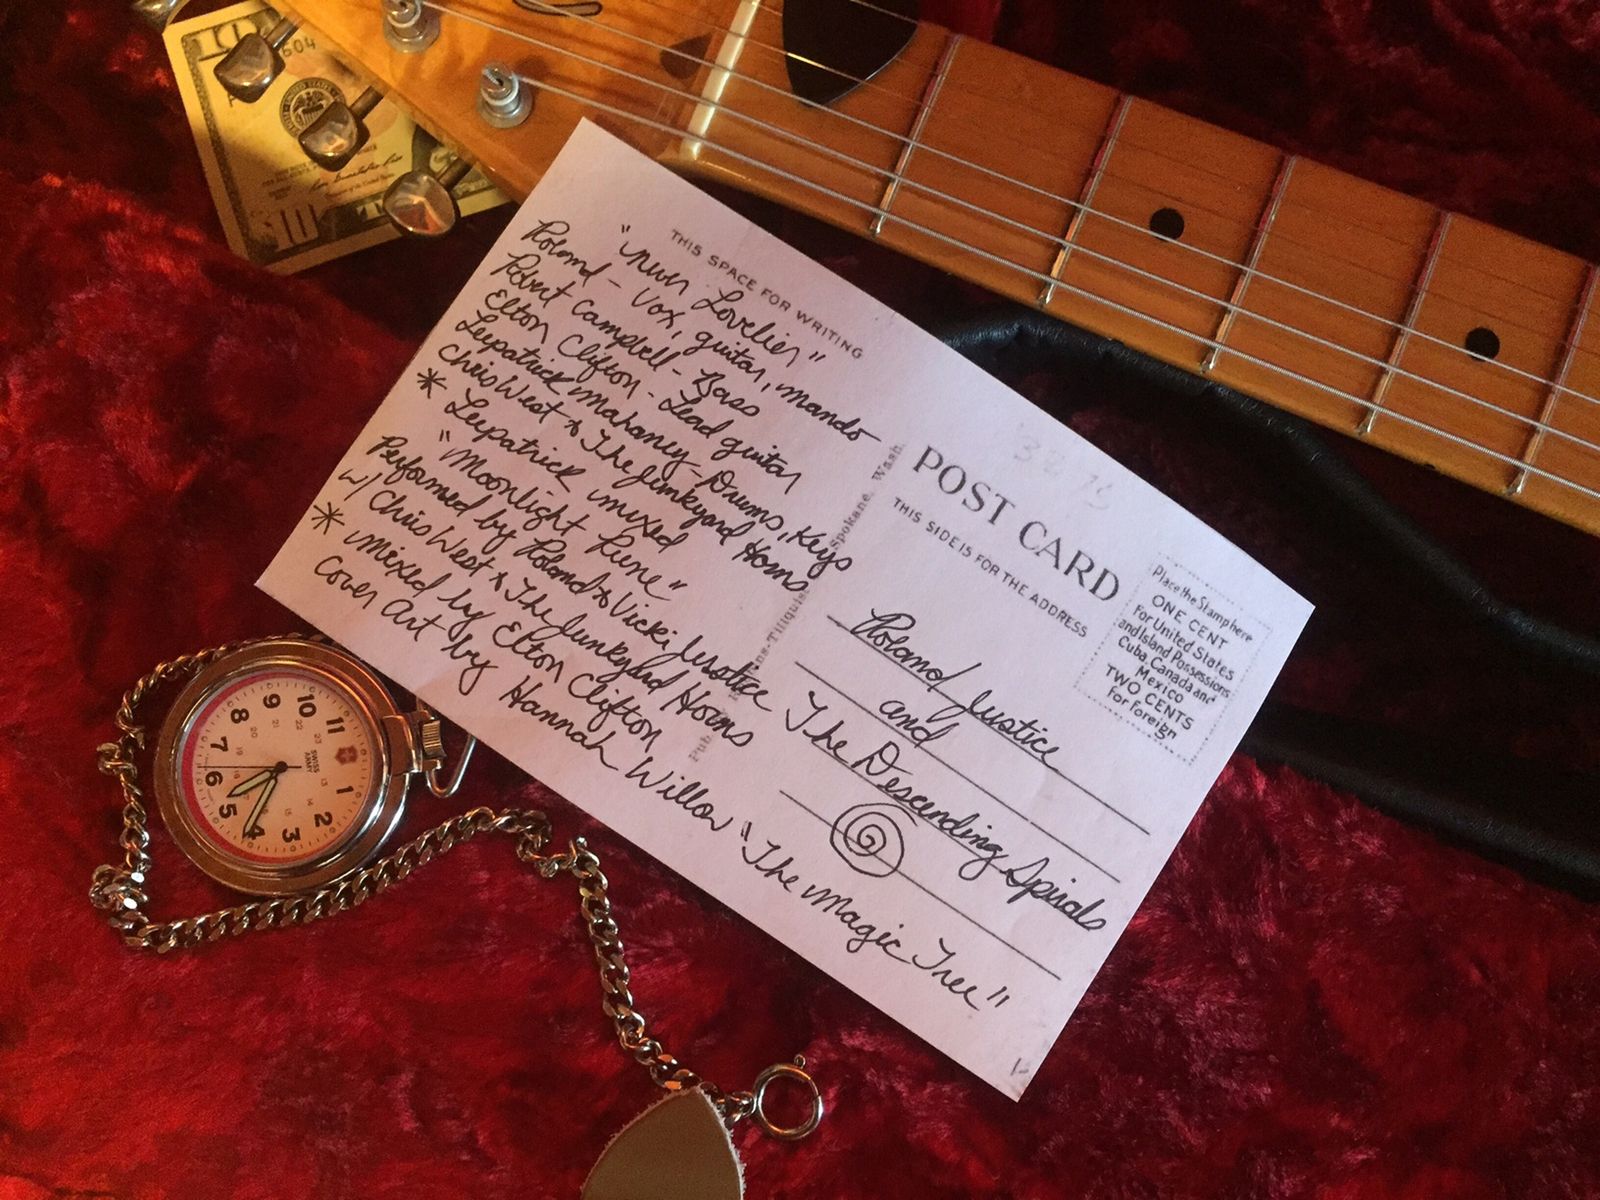 THIS SPACE FOR WRITING
"Never Lovelier"
Roland - Vox, guitar, mando
Robert Campbell - Bass
Elton Clifton - Lead guitar
Leepatrick Mahaney - Drums, Keys
Chris West & The Junkyard Horns
* Leepatrick mixed
"Moonlight Rune"
Performed by Roland & Vicki Justice
w/ Chris West & The Junkyard Horns
* mixed by Elton Clifton
Cover Art by Hannah Willow "The Magic Tree"
Spokane, Wash.
POST CARD
THIS SIDE IS FOR THE ADDRESS
Place the Stamp here
ONE CENT
For United States
and Island Possessions
Cuba, Canada and
Mexico
TWO CENTS
for Foreign
Roland Justice
and
The Descending Spirals
604
10
11
10
9
8
7
6
5
4
3
2
1
SWISS
ARMY